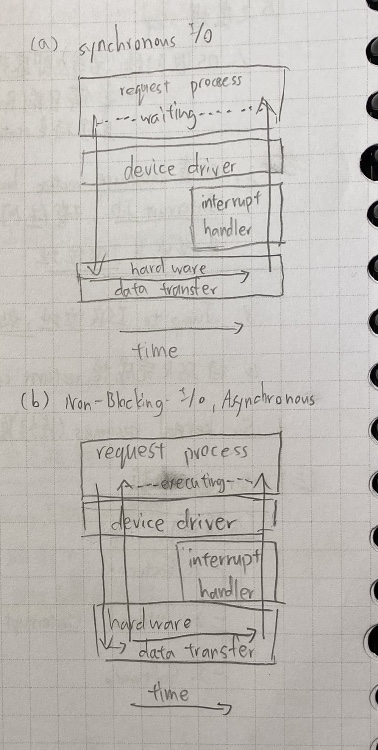 (a) synchronous I/O
request process
waiting
device driver
interrupt
handler
hard ware
data transter
time
(b) Non-Blocking I/O, Asynchronous
request process
executing
device driver
interrupt
handler
hardware
data transter
time